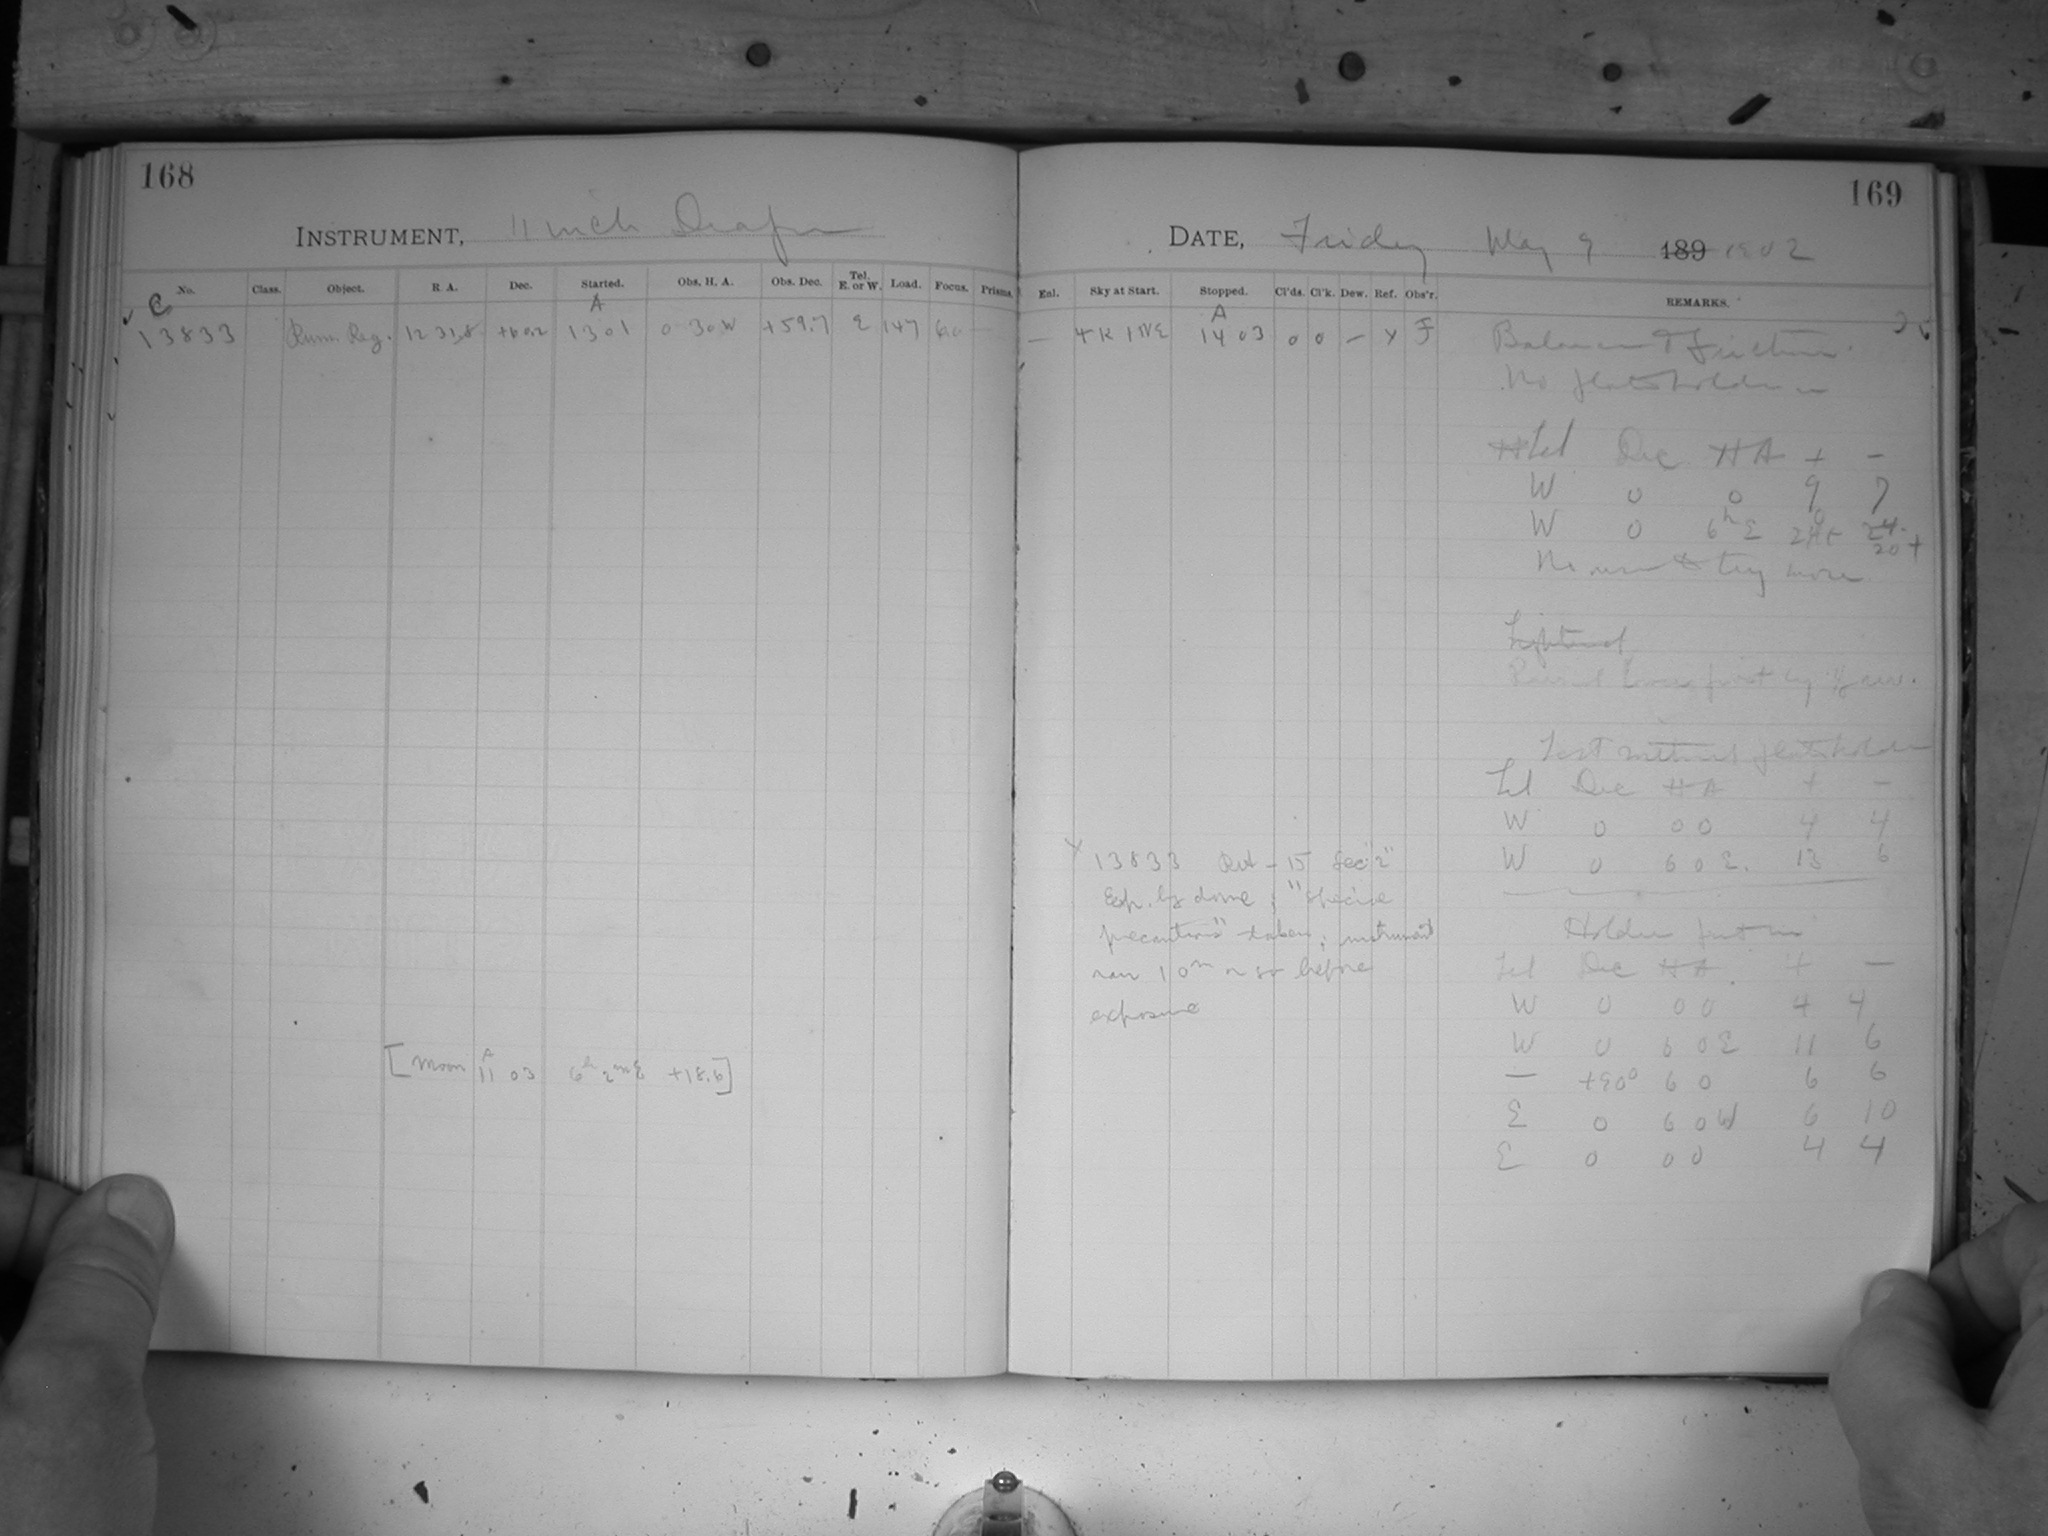 168
INSTRUMENT, 11 inch Draper
No. Class. Object. R A. Dec. Started. Obs. H. A. Obs. Dec. Tel. E. or W. Load. Focus. Prisms.
C A
13833 Reg. 12 31.8 +60.2 13 01 0 30 W +59.7 E 147 6.0 —
[Moon A 11 03 6h 2m E +18.6]
169
DATE, Friday May 9 189 1902
Enl. Sky at Start. Stopped. Cl'ds. Cl'k. Dew. Ref. Obs'r. REMARKS.
A
— 4R 1NE 14 03 0 0 — Y F
Balance & friction.
No plateholder in
Tel Dec HA + -
W 0 0 9 7
W 0 6h E 24 20+
No use to try more
Lightened
Test without plateholder
Tel Dec HA + -
W 0 0 0 4 4
W 0 6 0 E. 13 6
Holder put in
Tel Dec HA + —
W 0 0 0 4 4
W 0 6 0 E 11 6
— +90° 6 0 6 6
E 0 6 0 W 6 10
E 0 0 0 4 4
Y 13833 - 15 Sec "2"
Exp. by dome; "special
precautions" taken; instrument
ran 10m or so before
exposure